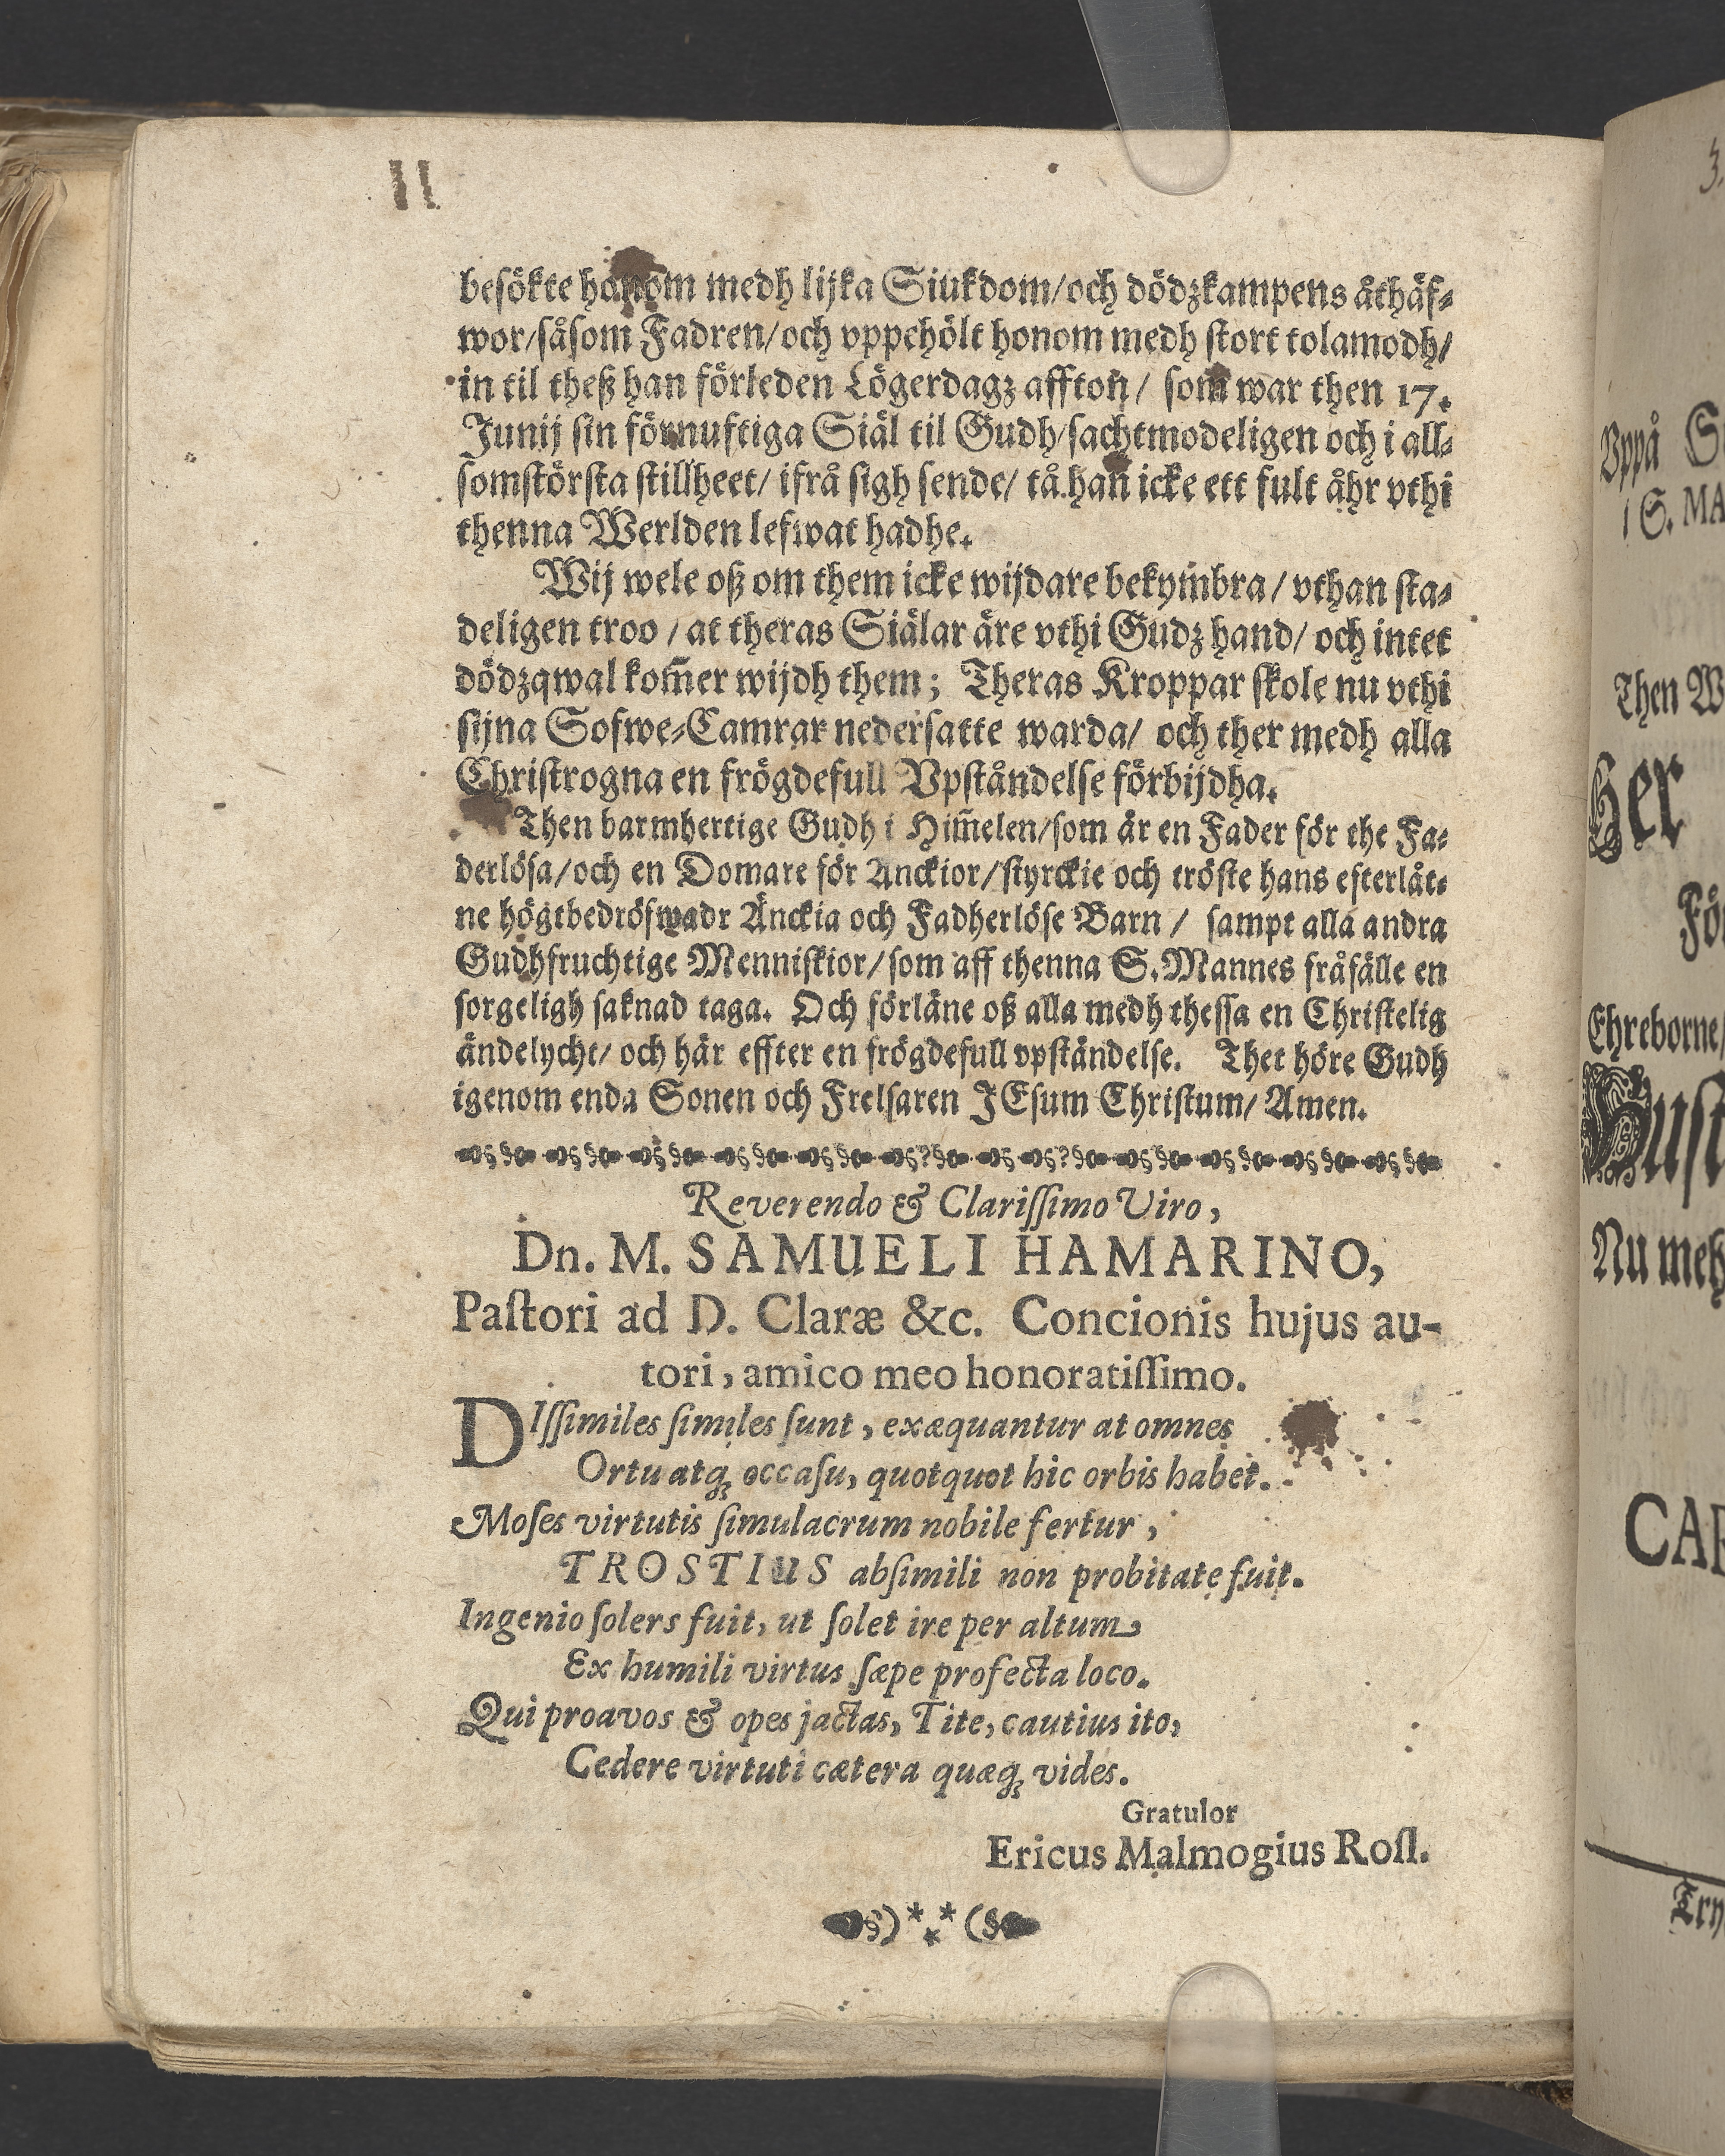 besökte honom medh lijka Siukdom/och dödzkampens åthäf-
wor/såsom Fadren/och vppehölt honom medh stort tolamodh/
in til theß han förleden Lögerdagz affton/ som war then 17.
Junij sin förnuftiga Siäl til Gudh/sachtmodeligen och i all-
somstörsta stillheet/ ifrå sigh sende/ tå han icke ett fult åhr vthi
thenna Werlden lefwat hadhe.
Wij wele oß om them icke wijdare bekym̄bra/ vthan sta-
deligen troo / at theras Siälar äre vthi Gudz hand/ och intet
dödzqwal kom̄er wijdh them; Theras Kroppar skole nu vthi
sijna Sofwe-Camrar nedersatte warda/ och ther medh alla
Christrogna en frögdefull Vpståndelse förbijdha.
Then barmhertige Gudh i Him̄elen/som är en Fader för the Fa-
derlösa/och en Domare för Anckior/styrckie och tröste hans efterlåt-
ne högtbedröfwadr Änckia och Fadherlöse Barn / sampt alla andra
Gudhfruchtige Menniskior/som aff thenna S. Mannes fråfälle en
sorgeligh saknad taga. Och förläne oß alla medh thessa en Christelig
ändelycht/ och här effter en frögdefull vpständelse. Thet höre Gudh
igenom enda Sonen och Frelsaren JEsum Christum/ Amen.
Reverendo & Clariſſimo Viro,
Dn. M. SAMUELI HAMARINO,
Paſtori ad D. Claræ &c. Concionis hujus au-
tori, amico meo honoratiſſimo.
DIſſimiles ſimiles ſunt, exæquantur at omnes
Ortu atq; occaſu, quotquot hic orbis habet.
Moſes virtutis ſimulacrum nobile fertur,
TROSTIUS abſimili non probitate fuit.
Ingenio ſolers fuit, ut ſolet ire per altum,
Ex humili virtus ſæpe profecta loco.
Qui proavos & opes jactas, Tite, cautius ito,
Cedere virtuti cætera quæq; vides.
Gratulor
Ericus Malmogius Roſl.
Vppå
i S. MA
Then W
Her
För
Ehreborne/
Hust
Nu meh
CAR
Try